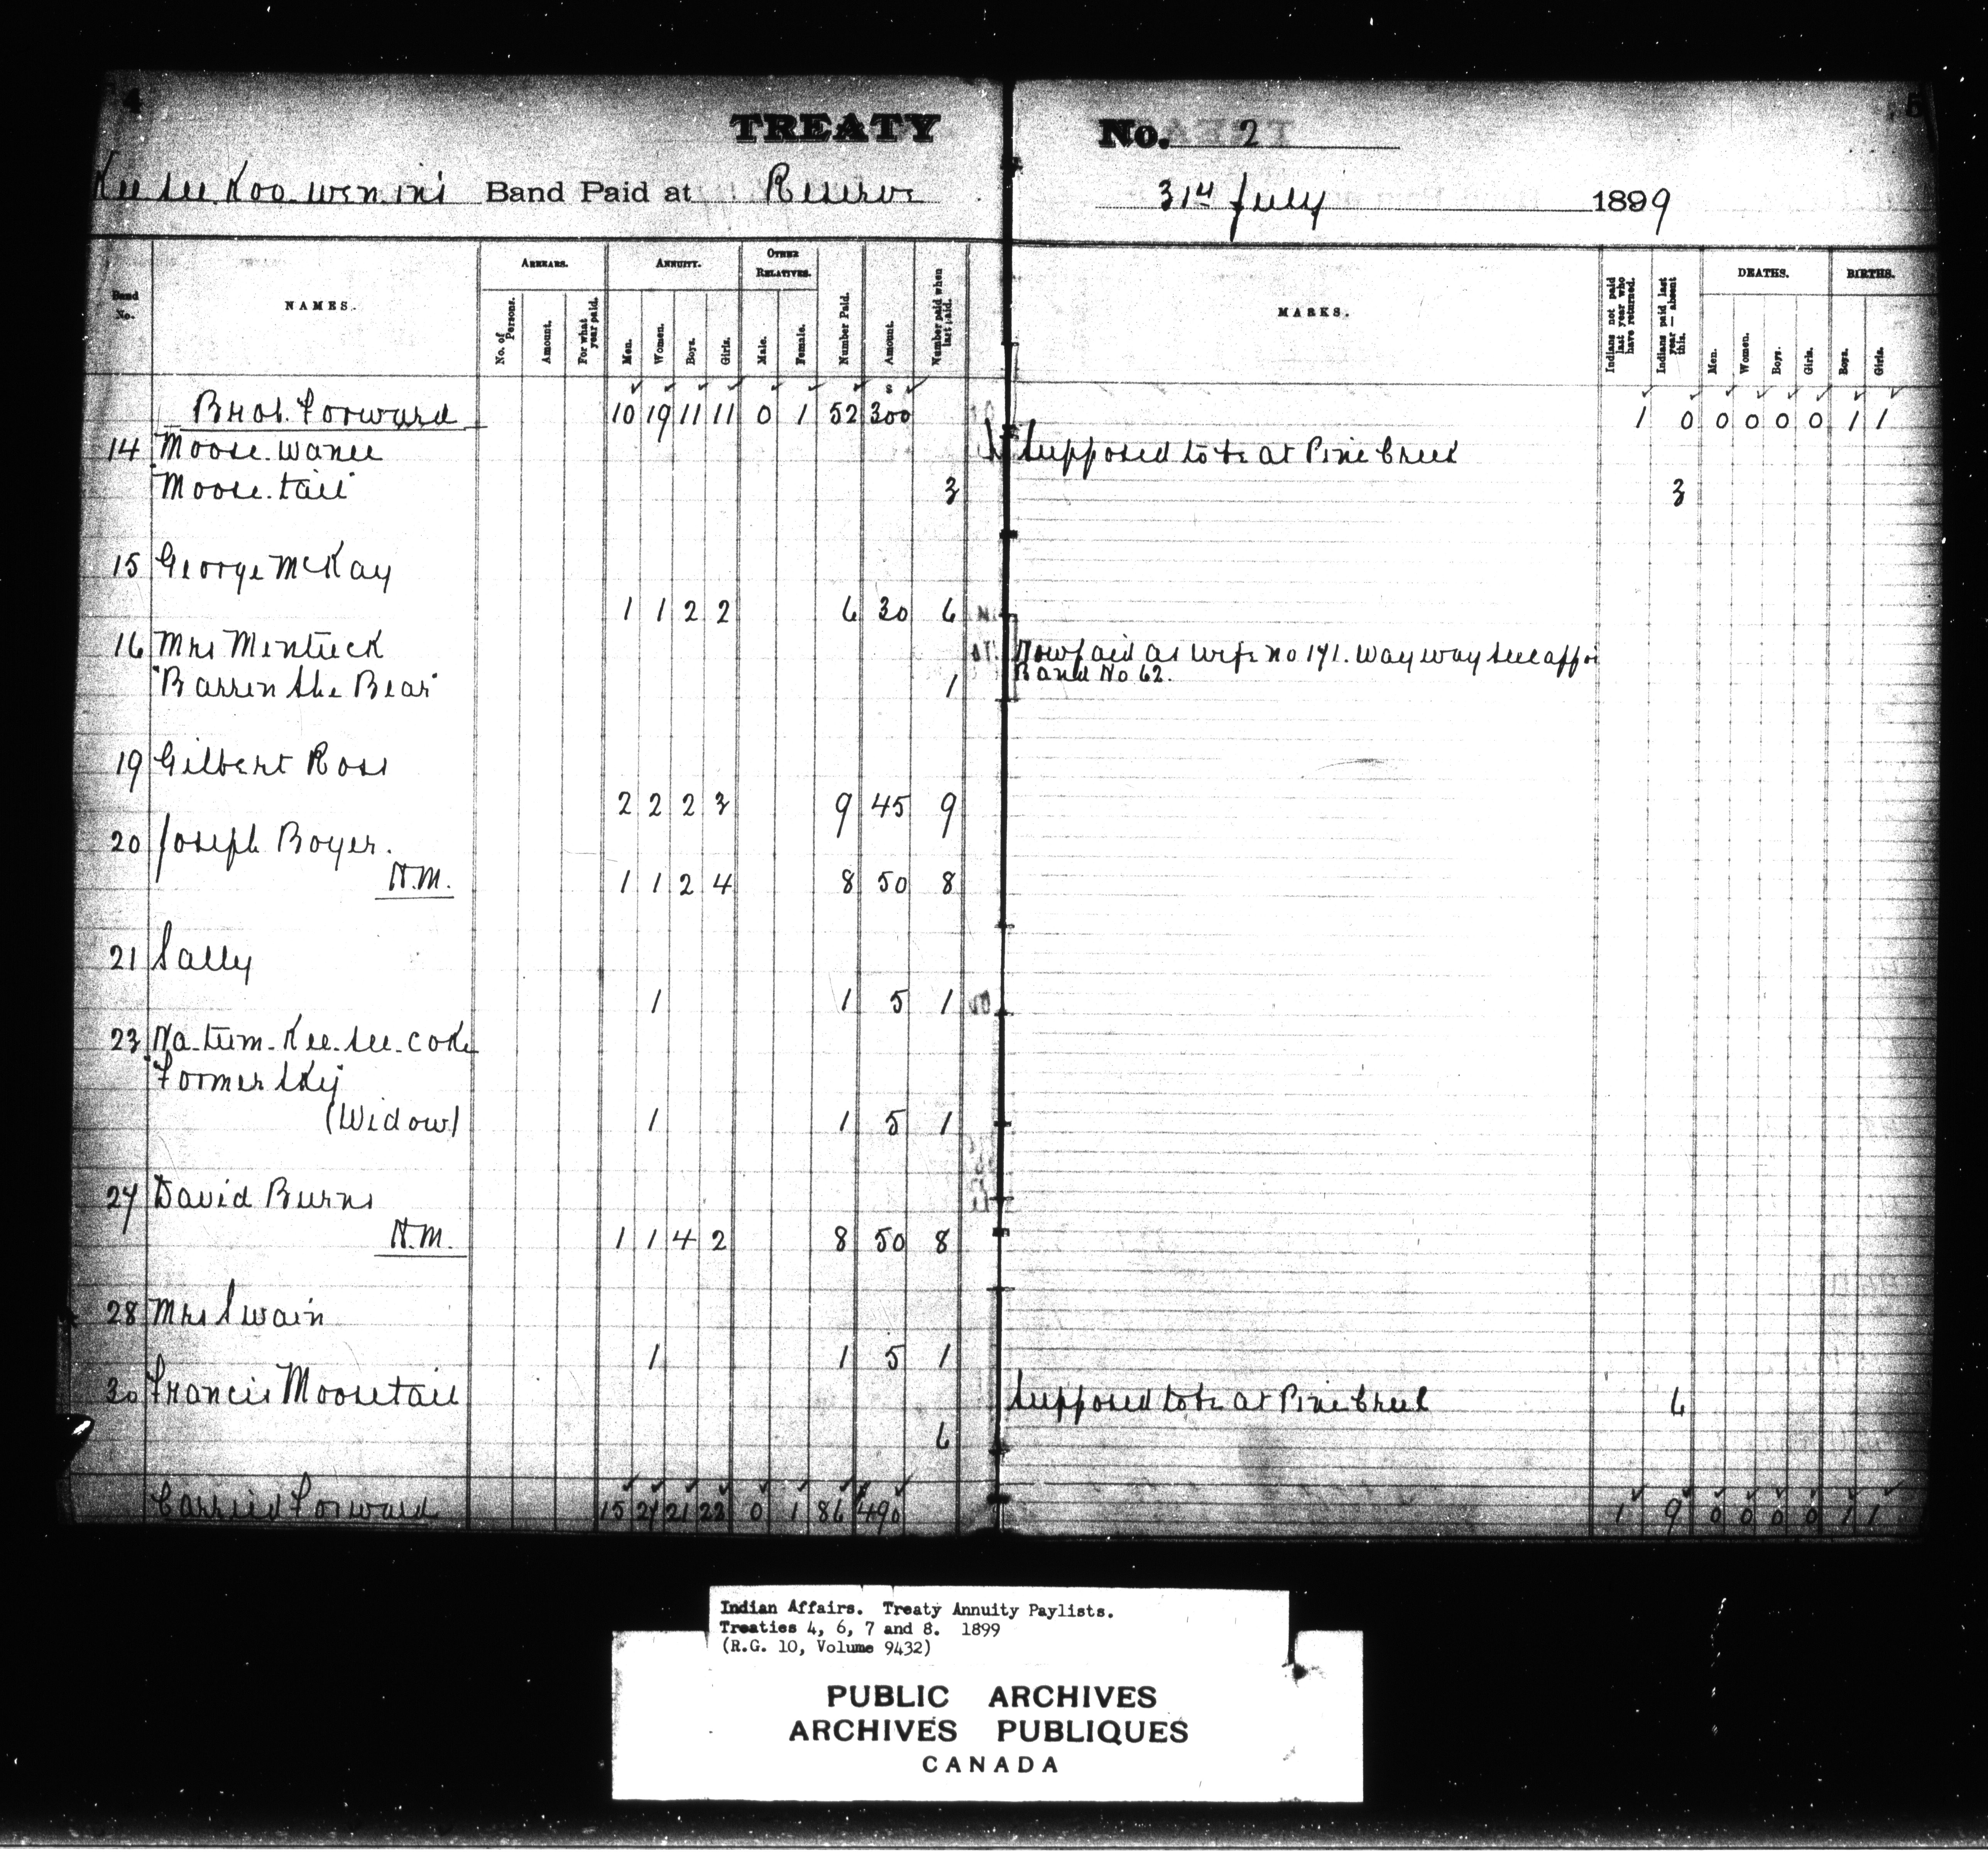 4
TREATY No. 2
5
Kee see Koo wenin's Band Paid at Reserve 31st July 1899
Band No. NAMES. ARREARS. ANNUITY. OTHER RELATIVES. Number Paid. Amount. Number paid when last paid. MARKS. Indians not paid last year who have returned. Indians paid last year — absent this. DEATHS. BIRTHS.
No. of Persons. Amount. For what year paid. Men. Women. Boys. Girls. Male. Female. Men. Women. Boys. Girls. Boys. Girls.
$
Brot. Forward 10 19 11 11 0 1 52 300 1 0 0 0 0 0 1 1
14 Moose wanee Supposed to be at Pine Creek
"Moose tail" 3 3
15 George McKay
1 1 2 2 6 30 6
16 Mrs Mentuck Now paid as wife no 171. Way way see
"Barren the Bear" 1 Band No 62.
19 Gilbert Ross
2 2 2 3 9 45 9
20 Joseph Boyer.
H.M. 1 1 2 4 8 50 8
21 Sally
1 1 5 1
23 Na-tum-Kee-see-coke
"Former Sky"
(Widow) 1 1 5 1
27 David Burns
H.M. 1 1 4 2 8 50 8
28 Mrs Swain
1 1 5 1
30 Francis Moosetail Supposed to be at Pine Creek 6
6
Carried Forward 15 27 21 22 0 1 86 490 1 9 0 0 0 0 1 1
Indian Affairs. Treaty Annuity Paylists.
Treaties 4, 6, 7 and 8. 1899
(R.G. 10, Volume 9432)
PUBLIC ARCHIVES
ARCHIVES PUBLIQUES
CANADA